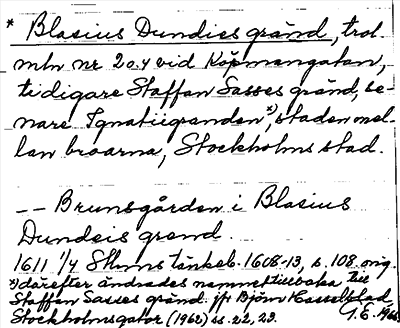 * Blasius Dundies gränd, trol.
mln nr 20.4 vid Köpmangatan,
tidigare Staffan Sasses gränd, se-
nare Ignatiigranden x), staden mel-
lan broarna, Stockholms stad.
-- Brunsgården i Blasius
Dundeis grend
1611 1/4 Sthms tänkeb. 1608-13, s. 108. orig.
x) därefter ändrades namnet tillbaka till
Staffan Sasses gränd. jfr Björn Hasselblad,
Stockholmsgator (1962) ss. 22, 23. G.E.